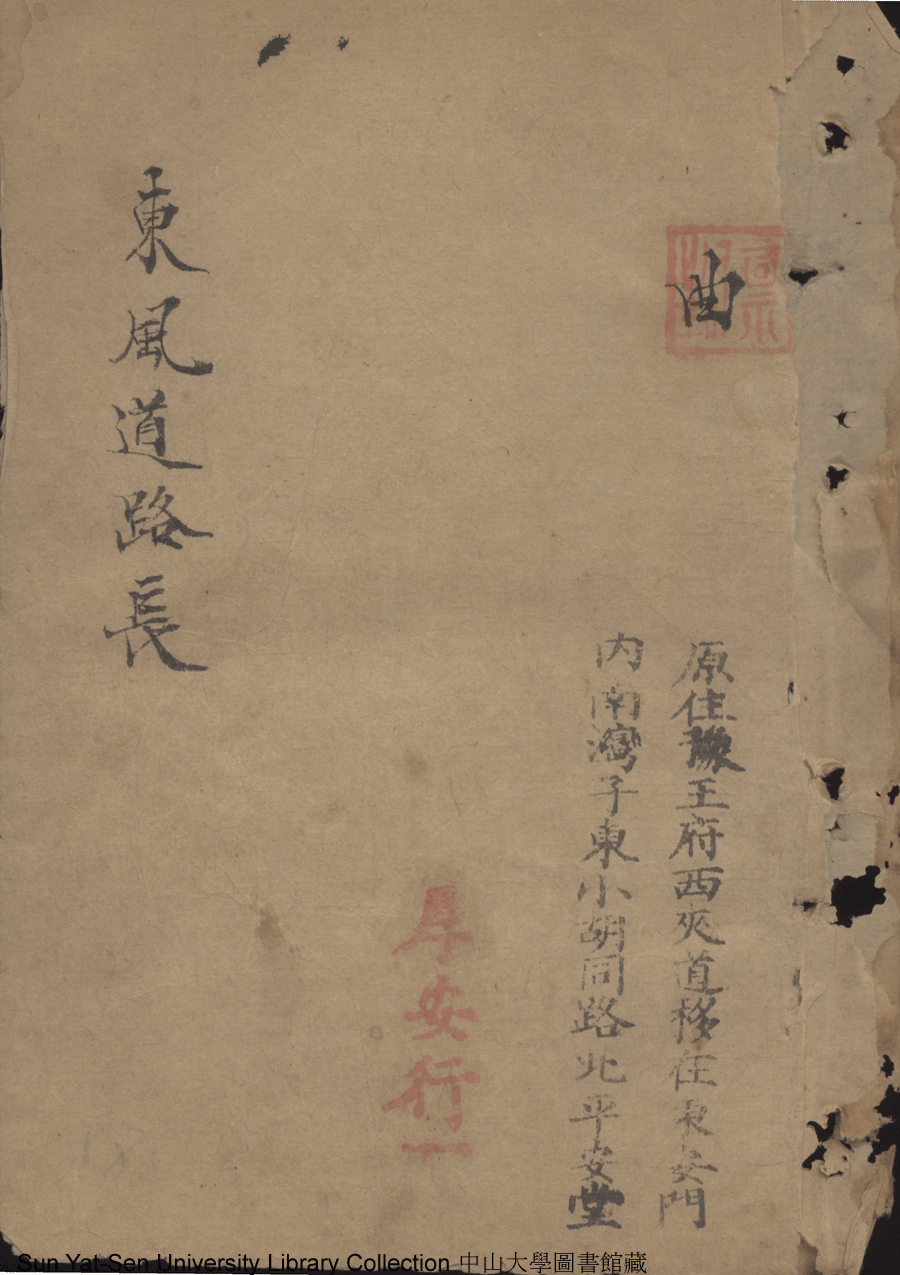 曲
原住豫王府西夾道移在東安門
內南灣子東小胡同路北平安堂
厚安行一
東風道路長
Sun Yat-Sen University Library Collection 中山大學圖書館藏